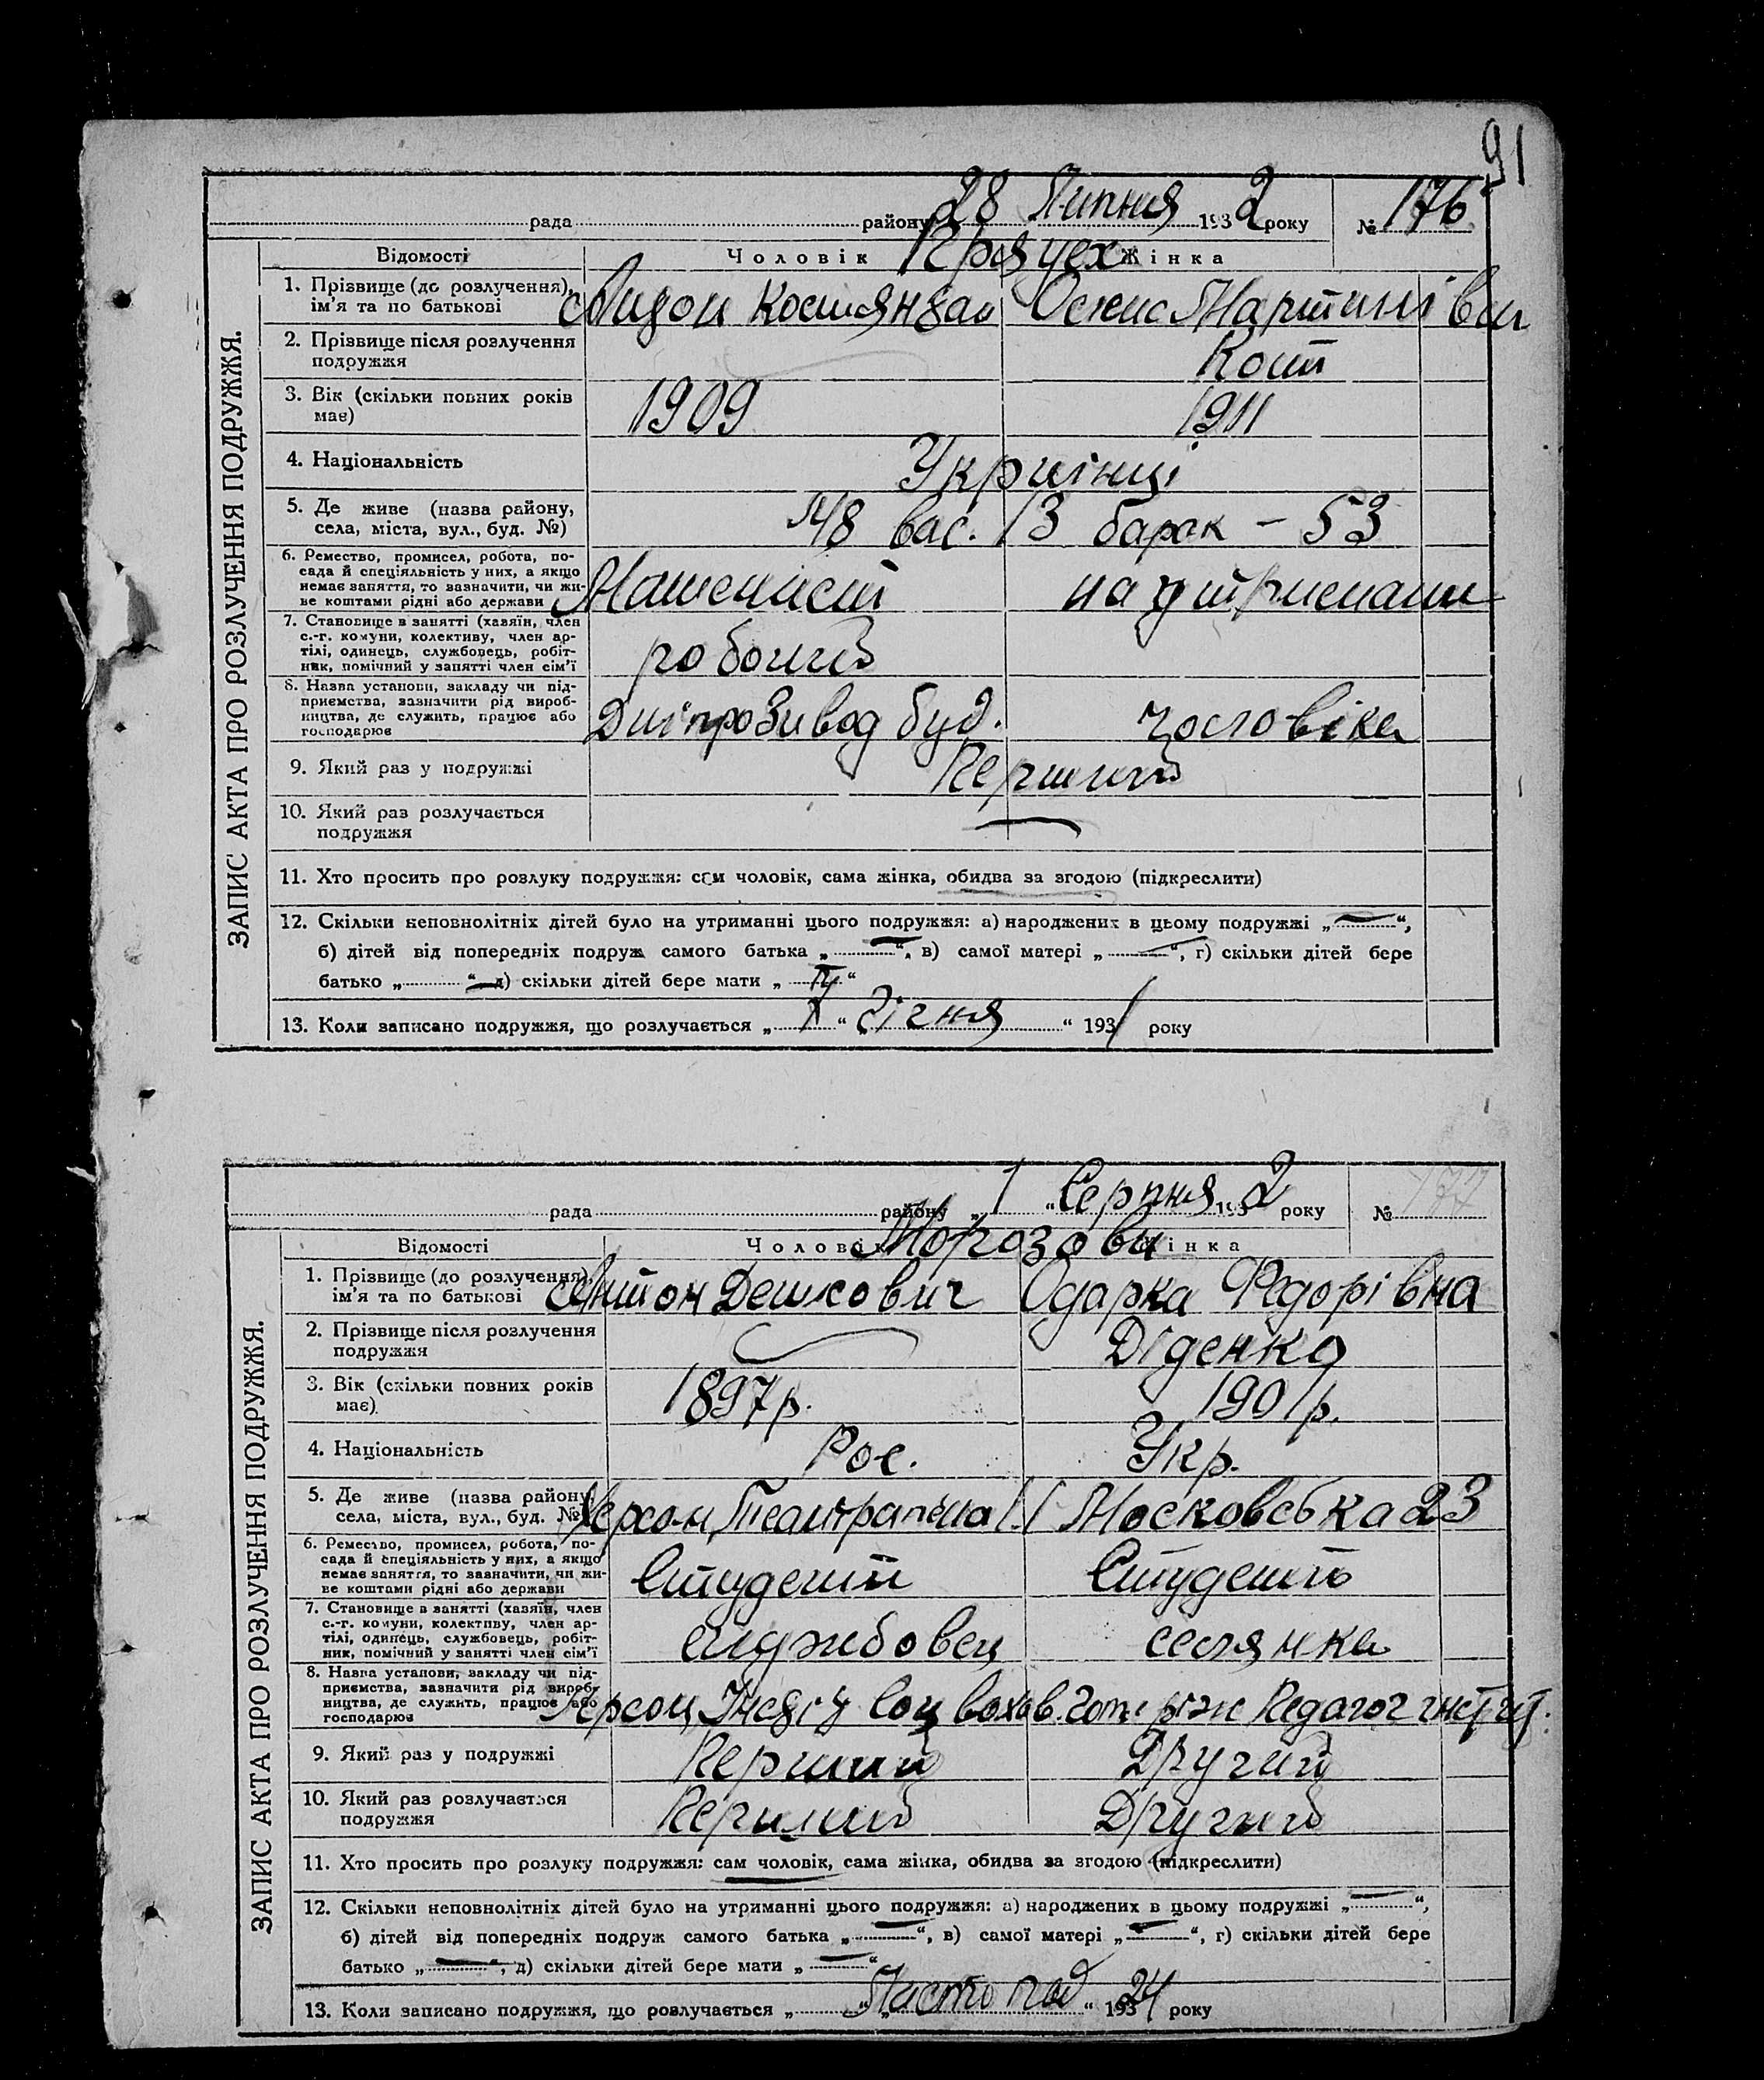 91
рада району 28 Липня 1932 року № 176
Відомості Чоловік Жінка
1. Прізвище (до розлучення), ім'я та по батькові
Мартинівна
2. Прізвище після розлучення
подружжя
Кот
3. Вік (скільки повних років
має)
1909 1911
4. Національність
Українці
5. Де живе (назва району,
села, міста, вул., буд. №)
13 барак – 53
6. Ремество, промисел, робота, по-
сада й спеціяльність у них, а якщо
немає заняття, то зазначити, чи жи-
ве коштами рідні або держави
на утриманні
7. Становище в занятті (хазяїн, член
с.-г. комуни, колективу, член ар-
тілі, одинець, службовець, робіт-
ник, помічний у занятті член сім'ї
робочий
8. Назва установи, закладу чи під-
приємства, зазначити рід вироб-
ництва, де служить, працює або
господарює
буд. чоловіка
9. Який раз у подружжі
Перший
10. Який раз розлучається
подружжя
11. Хто просить про розлуку подружжя: сам чоловік, сама жінка, обидва за згодою (підкреслити)
12. Скільки неповнолітніх дітей було на утриманні цього подружжя: а) народжених в цьому подружжі „ — “,
б) дітей від попередніх подруж самого батька „ — “, в) самої матері „ — “, г) скільки дітей бере
батько „ — “ д) скільки дітей бере мати „ “
13. Коли записано подружжя, що розлучається „ “ Січня “ 1931 року
ЗАПИС АКТА ПРО РОЗЛУЧЕННЯ ПОДРУЖЖЯ.
рада району „1 “ Серпня 1932 року № 177
Відомості Чоловік Жінка
Морозови
1. Прізвище (до розлучення),
ім'я та по батькові
Антон Одарка Федорівна
2. Прізвище після розлучення
подружжя
Діденко
3. Вік (скільки повних років
має)
1897 р. 1901 р.
4. Національність
Рос. Укр.
5. Де живе (назва району,
села, міста, вул., буд. №)
Херсон, Московська 23
6. Ремество, промисел, робота, по-
сада й спеціяльність у них, а якщо
немає заняття, то зазначити, чи жи-
ве коштами рідні або держави
Студент Студент
7. Становище в занятті (хазяїн, член
с.-г. комуни, колективу, член ар-
тілі, одинець, службовець, робіт-
ник, помічний у занятті член сім'ї
службовец селянка
8. Назва установи, закладу чи під-
приємства, зазначити рід вироб-
ництва, де служить, працює або
господарює
Херсон, Соц
9. Який раз у подружжі
Перший Другий
10. Який раз розлучається
подружжя
Перший Другий
11. Хто просить про розлуку подружжя: сам чоловік, сама жінка, обидва за згодою (підкреслити)
12. Скільки неповнолітніх дітей було на утриманні цього подружжя: а) народжених в цьому подружжі „ — “,
б) дітей від попередніх подруж самого батька „ — “, в) самої матері „ — “, г) скільки дітей бере
батько „ — “, д) скільки дітей бере мати „ — “
13. Коли записано подружжя, що розлучається „ “ „ Листопад “ 24 року
ЗАПИС АКТА ПРО РОЗЛУЧЕННЯ ПОДРУЖЖЯ.